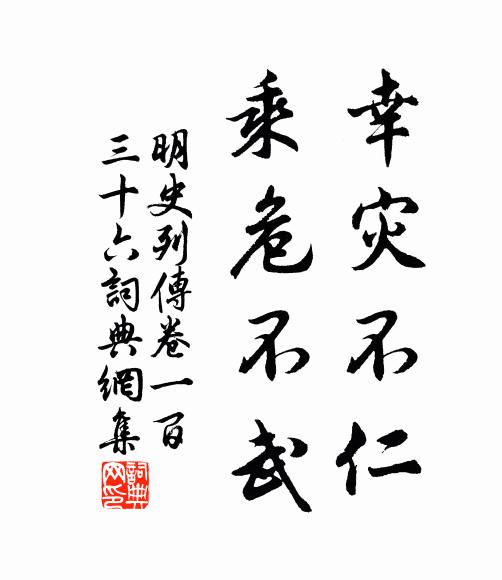 幸灾不仁
乘危不武
明史列傳卷一百
三十六詞典網集
詞典
网印